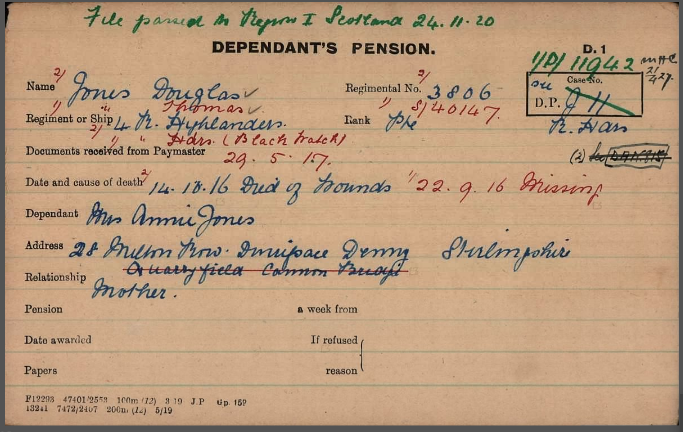 File passed to Region I Scotland 24.11.20
DEPENDANT'S PENSION.
D. 1
1/D/ 11942
MAC
21/4/27.
Name 2/ Jones Douglas
1/ " Thomas
Regimental No. 2/ 3806
1/ S/40147.
Case No.
see
D.P. J 11
Regiment or Ship 2/ 4 R. Hyhlanders.
1/ " Hdrs. (Black Watch)
Rank Pte
R. Hdrs
Documents received from Paymaster 29. 5. 17.
(2)
Date and cause of death 2/ 14. 10. 16 Died of Wounds 1/ 22. 9. 16 Missing
Dependant Mrs Annie Jones
Address 28 Milton Row. Dunipace Denny Stirlingshire
Quarryfield Cannon Bridge
Relationship Mother.
Pension a week from
Date awarded If refused
Papers reason
F12293 47401/2553 100m (12) 3 19 J.P Gp. 152
13241 7472/2407 200m (12) 5/19